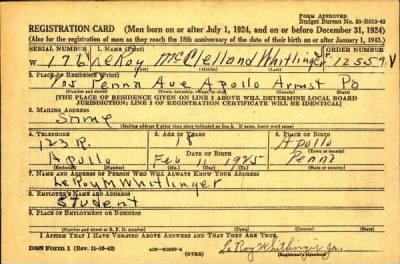 FORM APPROVED
Budget Bureau No. 33-R012-42
REGISTRATION CARD (Men born on or after July 1, 1924, and on or before December 31, 1924)
(Also for the registration of men as they reach the 18th anniversary of the date of their birth on or after January 1, 1943.)
SERIAL NUMBER 1. NAME (Print) ORDER NUMBER
176 LeRoy McClelland Whitlinger 12559 V
2. PLACE OF RESIDENCE (Print)
Penna Ave Apollo Armst Pa
(THE PLACE OF RESIDENCE GIVEN ON LINE 2 ABOVE WILL DETERMINE LOCAL BOARD
JURISDICTION; LINE 2 OF REGISTRATION CERTIFICATE WILL BE IDENTICAL)
3. MAILING ADDRESS
Same
4. TELEPHONE 5. AGE IN YEARS 6. PLACE OF BIRTH
123 R. 18 Apollo
DATE OF BIRTH
Apollo Feb 11 1925 Penna
7. NAME AND ADDRESS OF PERSON WHO WILL ALWAYS KNOW YOUR ADDRESS
LeRoy M Whitlinger
8. EMPLOYER'S NAME AND ADDRESS
Student
9. PLACE OF EMPLOYMENT OR BUSINESS
I AFFIRM THAT I HAVE VERIFIED ABOVE ANSWERS AND THAT THEY ARE TRUE.
DSS Form 1 (Rev. 11-16-42) (OVER) LeRoy Whitlinger Jr.